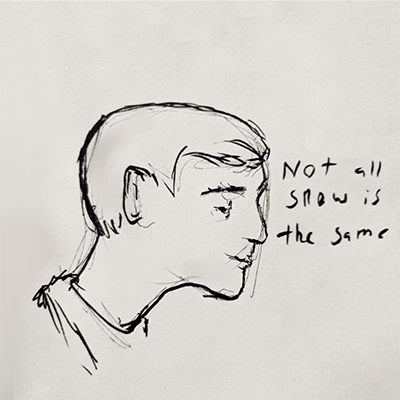 Not all
snow is
the same